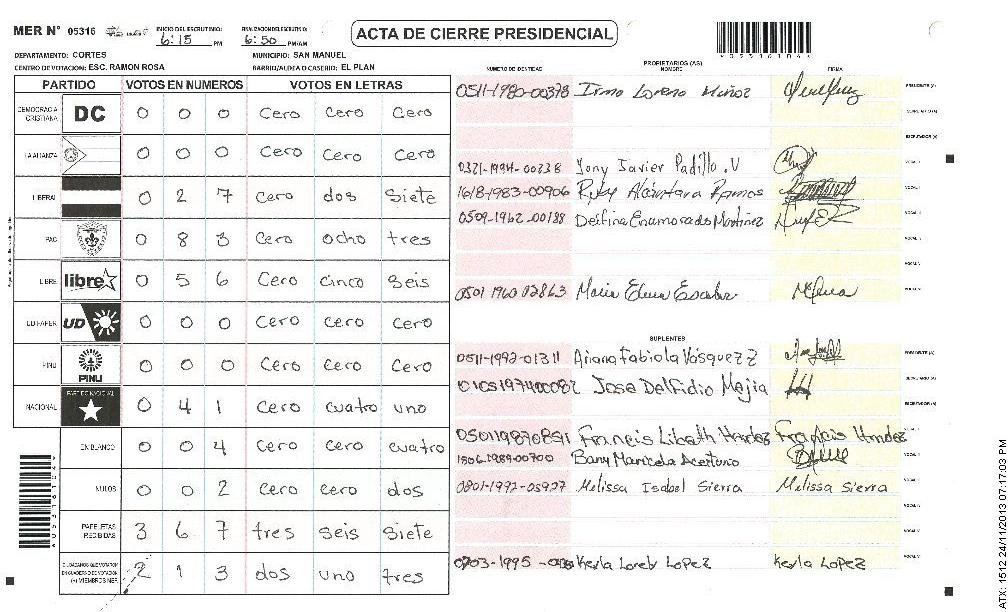 MER N° 05316 INICIO DEL ESCRUTINIO: 6:15 PM FINALIZACION DEL ESCRUTINIO: 6:50 PM/AM
ACTA DE CIERRE PRESIDENCIAL
DEPARTAMENTO: CORTES MUNICIPIO: SAN MANUEL
CENTRO DE VOTACION: ESC. RAMON ROSA BARRIO/ALDEA O CASERIO: EL PLAN
PROPIETARIOS (AS)
NUMERO DE IDENTIDAD NOMBRE FIRMA
PARTIDO VOTOS EN NUMEROS VOTOS EN LETRAS
DEMOCRACIA CRISTIANA DC 0 0 0 Cero Cero Cero
LA ALIANZA 0 0 0 Cero Cero Cero
LIBERAL 0 2 7 Cero dos Siete
PAC 0 8 3 Cero ocho tres
LIBRE libre 0 5 6 Cero cinco Seis
UD-FAPER UD 0 0 0 Cero Cero Cero
PINU PINU 0 0 0 Cero Cero Cero
NACIONAL PARTIDO NACIONAL 0 4 1 Cero cuatro uno
EN BLANCO 0 0 4 Cero Cero cuatro
NULOS 0 0 2 Cero cero dos
PAPELETAS RECIBIDAS 3 6 7 tres seis siete
CIUDADANOS QUE VOTARON EN CUADERNO DE VOTACION (+) MIEMBROS MER 2 1 3 dos uno tres
0511-1980-00378 Irma Lorena Muñoz PRESIDENTE (A)
SECRETARIO (A)
ESCRUTADOR (A)
0321-1994-00238 Jony Javier Padillo.V VOCAL I
1618-1983-00906 Ruby Alcantara Ramos
0509-1962-00188 Delfina Enamorado Martinez
0501 1960 02863 Maria Elena Escobar
SUPLENTES
0511-1992-01311 Ariana Fabiola Vásquez Z PRESIDENTE (A)
0101 0519740008 2 Jose Delfidio Mejia SECRETARIO (A)
ESCRUTADOR (A)
Francis Libeth
1806-1989-00700 Bany Maricela
0801-1992-05927 Melissa Isabel Sierra Melissa Sierra
Kerla Lorely Lopez Kerla Lopez
ATX: 1512 24/11/2013 07:17:03 PM